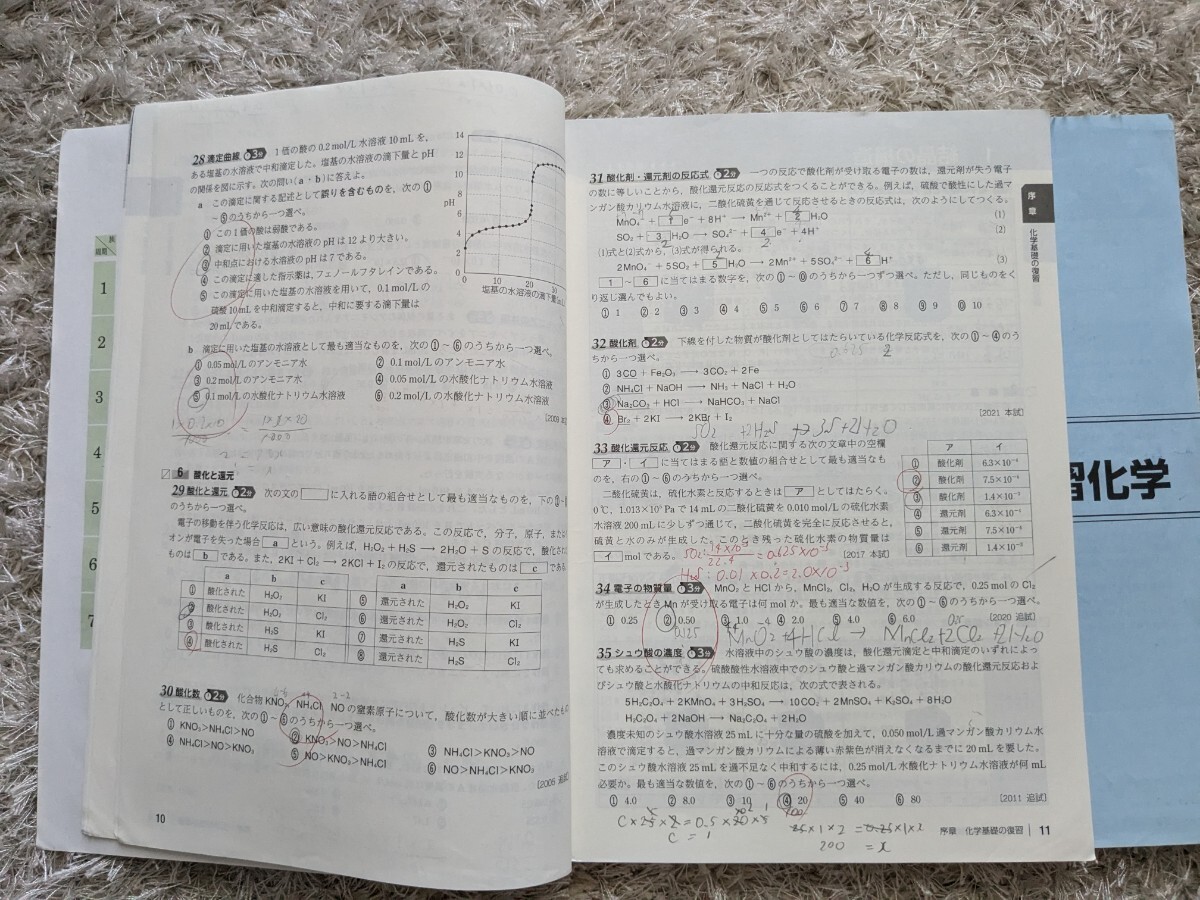 28 滴定曲線 3分 1価の酸の0.2 mol/L 水溶液10 mLを,
ある塩基の水溶液で中和滴定した。塩基の水溶液の滴下量とpH
の関係を図に示す。次の問い(a・b)に答えよ。
a この滴定に関する記述として誤りを含むものを,次の①
～⑤のうちから一つ選べ。
① この1価の酸は弱酸である。
② 滴定に用いた塩基の水溶液のpHは12より大きい。
③ 中和点における水溶液のpHは7である。
④ この滴定に適した指示薬は,フェノールフタレインである。
⑤ この滴定に用いた塩基の水溶液を用いて,0.1 mol/Lの
硫酸10 mLを中和滴定すると,中和に要する滴下量は
20 mLである。
14
12
10
8
pH
6
4
2
0
0 10 20 30
塩基の水溶液の滴下量
b 滴定に用いた塩基の水溶液として最も適当なものを,次の①～⑥のうちから一つ選べ。
① 0.05 mol/Lのアンモニア水 ② 0.1 mol/Lのアンモニア水
③ 0.2 mol/Lのアンモニア水 ④ 0.05 mol/Lの水酸化ナトリウム水溶液
⑤ 0.1 mol/Lの水酸化ナトリウム水溶液 ⑥ 0.2 mol/Lの水酸化ナトリウム水溶液
6 酸化と還元
29 酸化と還元 2分 次の文の に入れる語の組合せとして最も適当なものを,下の①
のうちから一つ選べ。
電子の移動を伴う化学反応は,広い意味の酸化還元反応である。この反応で,分子,原子,また
オンが電子を失った場合 a という。例えば,H₂O₂ + H₂S → 2H₂O + S の反応で,酸化され
ものは b である。また,2KI + Cl₂ → 2KCl + I₂の反応で,還元されたものは c である
a b c a b c
① 酸化された H₂O₂ KI ⑤ 還元された H₂O₂ KI
② 酸化された H₂O₂ Cl₂ ⑥ 還元された H₂O₂ Cl₂
③ 酸化された H₂S KI ⑦ 還元された H₂S KI
④ 酸化された H₂S Cl₂ ⑧ 還元された H₂S Cl₂
30 酸化数 2分 化合物 KNO₃, NH₄Cl, NOの窒素原子について,酸化数が大きい順に並べたもの
として正しいものを,次の①～⑥のうちから一つ選べ。
① KNO₃>NH₄Cl>NO ② KNO₃>NO>NH₄Cl ③ NH₄Cl>KNO₃>NO
④ NH₄Cl>NO>KNO₃ ⑤ NO>KNO₃>NH₄Cl ⑥ NO>NH₄Cl>KNO₃
10
31 酸化剤・還元剤の反応式 2分 一つの反応で酸化剤が受け取る電子の数は,還元剤が失う電子
の数に等しいことから,酸化還元反応の反応式をつくることができる。例えば,硫酸で酸性にした過マ
ンガン酸カリウム水溶液に,二酸化硫黄を通じて反応させるときの反応式は,次のようにしてつくる。
MnO₄⁻ + 1 e⁻ + 8H⁺ → Mn²⁺ + 2 H₂O (1)
SO₂ + 3 H₂O → SO₄²⁻ + 4 e⁻ + 4H⁺ (2)
(1)式と(2)式から,(3)式が得られる。
2MnO₄⁻ + 5SO₂ + 5 H₂O → 2Mn²⁺ + 5SO₄²⁻ + 6 H⁺ (3)
1 ～ 6 に当てはまる数字を,次の①～⓪のうちから一つずつ選べ。ただし,同じものをく
り返し選んでもよい。
① 1 ② 2 ③ 3 ④ 4 ⑤ 5 ⑥ 6 ⑦ 7 ⑧ 8 ⑨ 9 ⓪ 10
32 酸化剤 2分 下線を付した物質が酸化剤としてはたらいている化学反応式を,次の①～④のう
ちから一つ選べ。
① 3CO + Fe₂O₃ → 3CO₂ + 2Fe
② NH₄Cl + NaOH → NH₃ + NaCl + H₂O
③ Na₂CO₃ + HCl → NaHCO₃ + NaCl
④ Br₂ + 2KI → 2KBr + I₂
[2021 本試]
SO₂ +2H₂S → 3S+2H₂O
33 酸化還元反応 2分 酸化還元反応に関する次の文章中の空欄
ア ・ イ に当てはまる語と数値の組合せとして最も適当なも
のを,右の①～⑥のうちから一つ選べ。
二酸化硫黄は,硫化水素と反応するときは ア としてはたらく。
0℃, 1.013×10⁵ Paで14 mLの二酸化硫黄を0.010 mol/Lの硫化水素
水溶液200 mLに少しずつ通じて,二酸化硫黄を完全に反応させると,
硫黄と水のみが生成した。このとき残った硫化水素の物質量は
イ molである。
[2017 本試]
ア イ
① 酸化剤 6.3×10⁻⁴
② 酸化剤 7.5×10⁻⁴
③ 酸化剤 1.4×10⁻³
④ 還元剤 6.3×10⁻⁴
⑤ 還元剤 7.5×10⁻⁴
⑥ 還元剤 1.4×10⁻³
H₂S: 0.01×0.2=2.0×10⁻³
34 電子の物質量 3分 MnO₂とHClから,MnCl₂, Cl₂, H₂Oが生成する反応で,0.25 molのCl₂
が生成したときMnが受け取る電子は何molか。最も適当な数値を,次の①～⑥のうちから一つ選べ。
① 0.25 ② 0.50 ③ 1.0 ④ 2.0 ⑤ 4.0 ⑥ 6.0 [2020 追試]
0.125
35 シュウ酸の濃度 3分 水溶液中のシュウ酸の濃度は,酸化還元滴定と中和滴定のいずれによっ
ても求めることができる。硫酸酸性水溶液中でのシュウ酸と過マンガン酸カリウムの酸化還元反応およ
びシュウ酸と水酸化ナトリウムの中和反応は,次の式で表される。
5H₂C₂O₄ + 2KMnO₄ + 3H₂SO₄ → 10CO₂ + 2MnSO₄ + K₂SO₄ + 8H₂O
H₂C₂O₄ + 2NaOH → Na₂C₂O₄ + 2H₂O
濃度未知のシュウ酸水溶液25 mLに十分な量の硫酸を加えて,0.050 mol/L過マンガン酸カリウム水
溶液で滴定すると,過マンガン酸カリウムによる薄い赤紫色が消えなくなるまでに20 mLを要した。
このシュウ酸水溶液25 mLを過不足なく中和するには,0.25 mol/L水酸化ナトリウム水溶液が何mL
必要か。最も適当な数値を,次の①～⑥のうちから一つ選べ。
① 4.0 ② 8.0 ③ 10 ④ 20 ⑤ 40 ⑥ 80 [2011 追試]
C = 1
200 = x
序章 化学基礎の復習 11
序章
化学基礎の復習
習化学
1
2
3
4
5
6
7